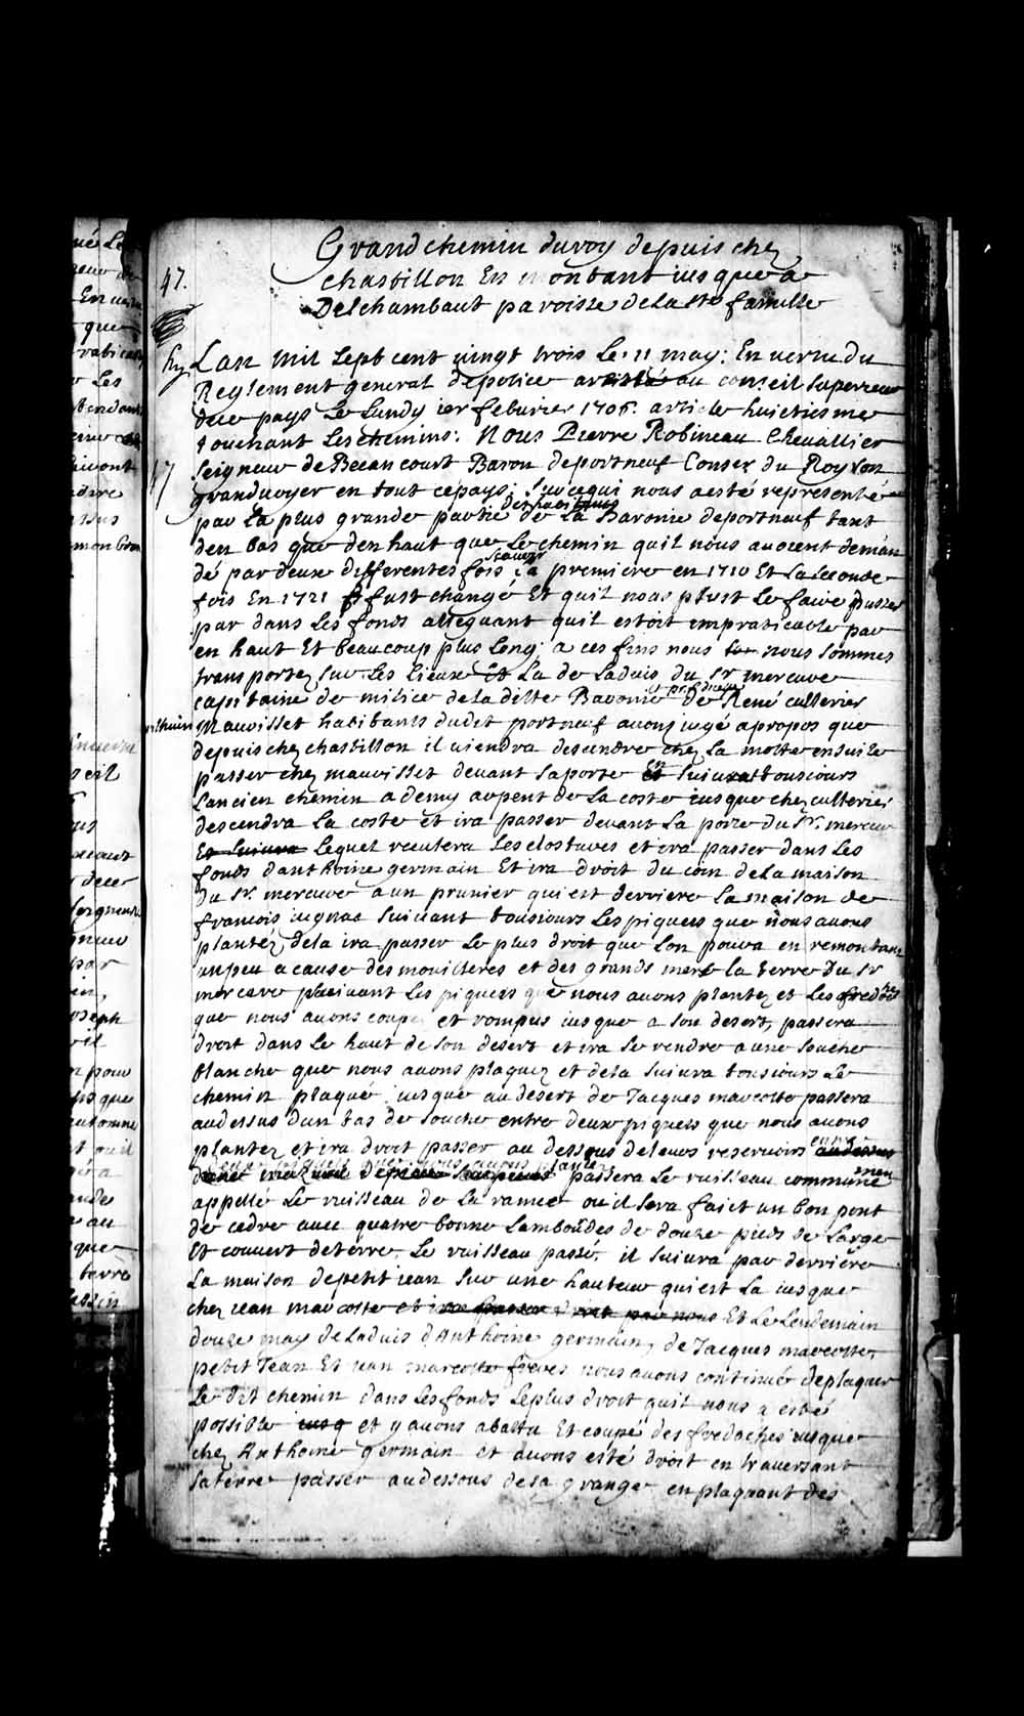 Grand chemin du roy depuis chez
47.
chastillon En montant iusque a
Deschambaut paroisse de la ste famille
Lan mil sept cent vingt trois le 11 may: En vertu du
Reglement general de police aresté au conseil superieur
due pays Le Lundy ier feburier 1706. article huictiesme
touchant Les chemins: Nous Pierre Robineau Chevallier
17
seigneur de Becancourt Baron de portneuf Conser du Roy son
grand voyer en tout ce pays: sur ce qui nous a esté representé
des habitans
par La plus grande partie de La Baronie de portneuf tant
den bas que den haut que Le chemin quil nous avoient deman
scavoir
dé par deux differentes fois La premiere en 1710 Et La seconde
fois En 1721 fust changé Et quil nous plust Le faire passer
par dans Les fonds alleguant quil estoit impraticable par
en haut Et beaucoup plus Long; a ces fins nous nous sommes
transportez sur Les Lieux Et La de Laduis du Sr mercure
capitaine de milice de la ditte Baronie de René cullerier
Mauvisset habitants dudit portneuf avons jugé a propos que
depuis chez chastillon il viendra descendre chez La motte ensuite
passer chez mauvisset devant sa porte Et suivra tousiours
Lancien chemin a demy arpent de La coste iusque chez cullerier
descendra La coste et ira passer devant La porte du Sr. mercure
Et suivra Lequel reculera Les clostures et ira passer dans Les
fonds danthoine germain Et ira droit du coin de la maison
du Sr. mercure a un prunier qui est derriere La maison de
francois iugnac suivant tousiours Les piquets que nous avons
plantez, dela ira passer Le plus droit que Lon poura en remontant
un peu a cause des mouilleres et des grands mers la terre du Sr
mercure suivant Les piquets que nous avons plantez et Les fredoches
que nous avons coupé et rompus iusque a son desert, passera
droit dans Le haut de son desert et ira se rendre a une souche
blanche que nous avons plaquez et dela suivra tousiours Le
chemin plaqué iusque au desert de Jacques marcotte passera
au dessus dun tas de souche entre deux piquets que nous avons
plantez et ira droit passer au dessous de leurs reservoirs au dessus
passera Le ruisseau commune
men
appellé Le ruisseau de La ramee ou il sera faict un bon pont
de cedre avec quatre bonne Lambourdes de douze pieds de Large
Et couvert de terre. Le ruisseau passé, il suivra par derriere
La maison de petit iean sur une hauteur qui est La iusque
chez iean marcotte et ira passer droit Et Le Lendemain
douze may de Laduis danthoine germain, de Jacques marcotte,
petit Jean Et iean marcotte freres nous avons continué de plaquer
Le dit chemin dans Les fonds Le plus droit quil nous a esté
possible iusq et y avons abattu Et coupé des fredoches iusque
chez Anthoine germain et avons esté droit en traversant
sa terre passer au dessous de sa grange en plaquant des